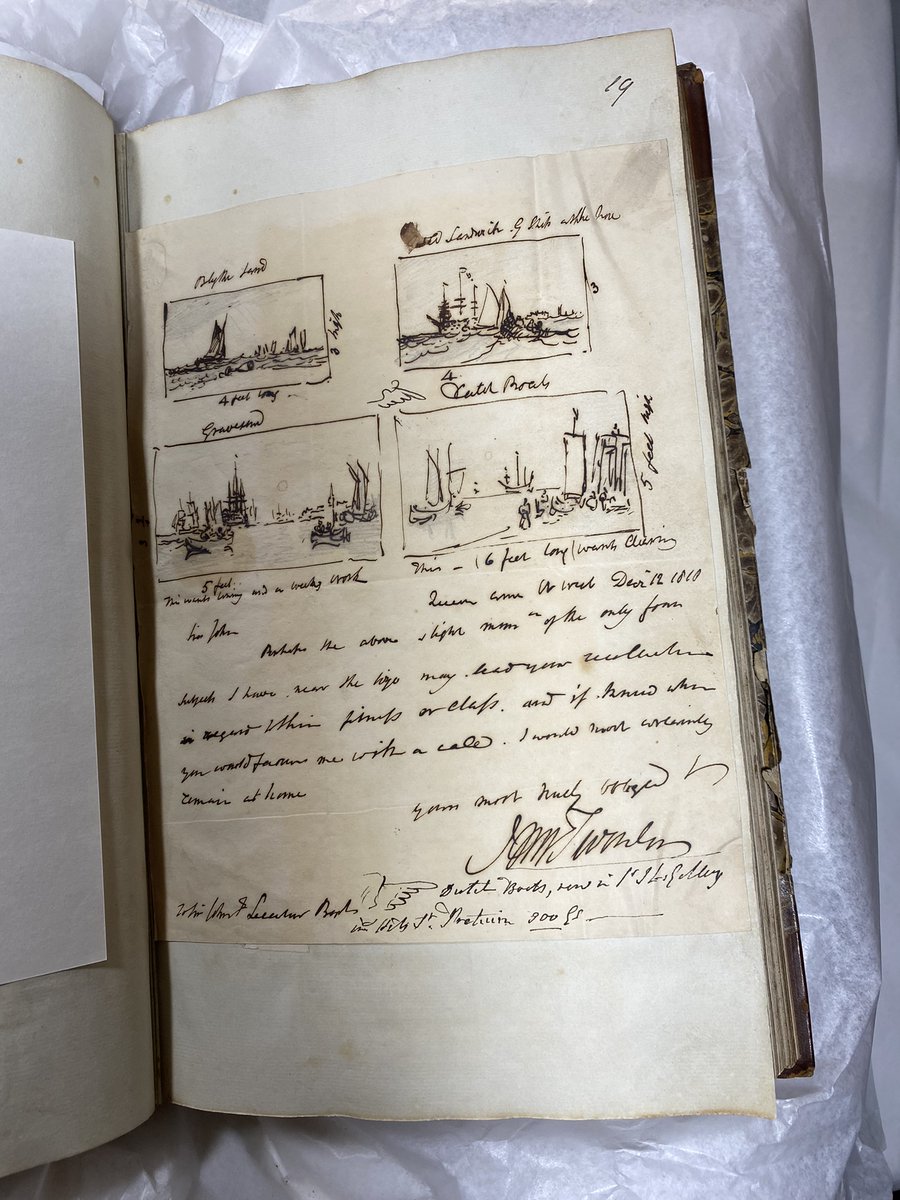 19
Blythe Sand
Sandwich G Ships at the Nore
3 high
3
4 feet long
4
Gravesend
Dutch Boats
5 feet high
5 feet
This wants lining and a weeks work
This — (6 feet long) wants
Queen Anne St West Decr 12 1810
Sir John
Perhaps the above slight mem of the only four
subjects I have near the size may lead your recollection
in regard to their fitness or class. and if I knew when
you would favour me with a call. I would most certainly
remain at home
yours most truly obliged
JMW Turner
Dutch Boats, now in Gallery
to Sir John F. Leicester Bart
in Hill St. 300 Gs